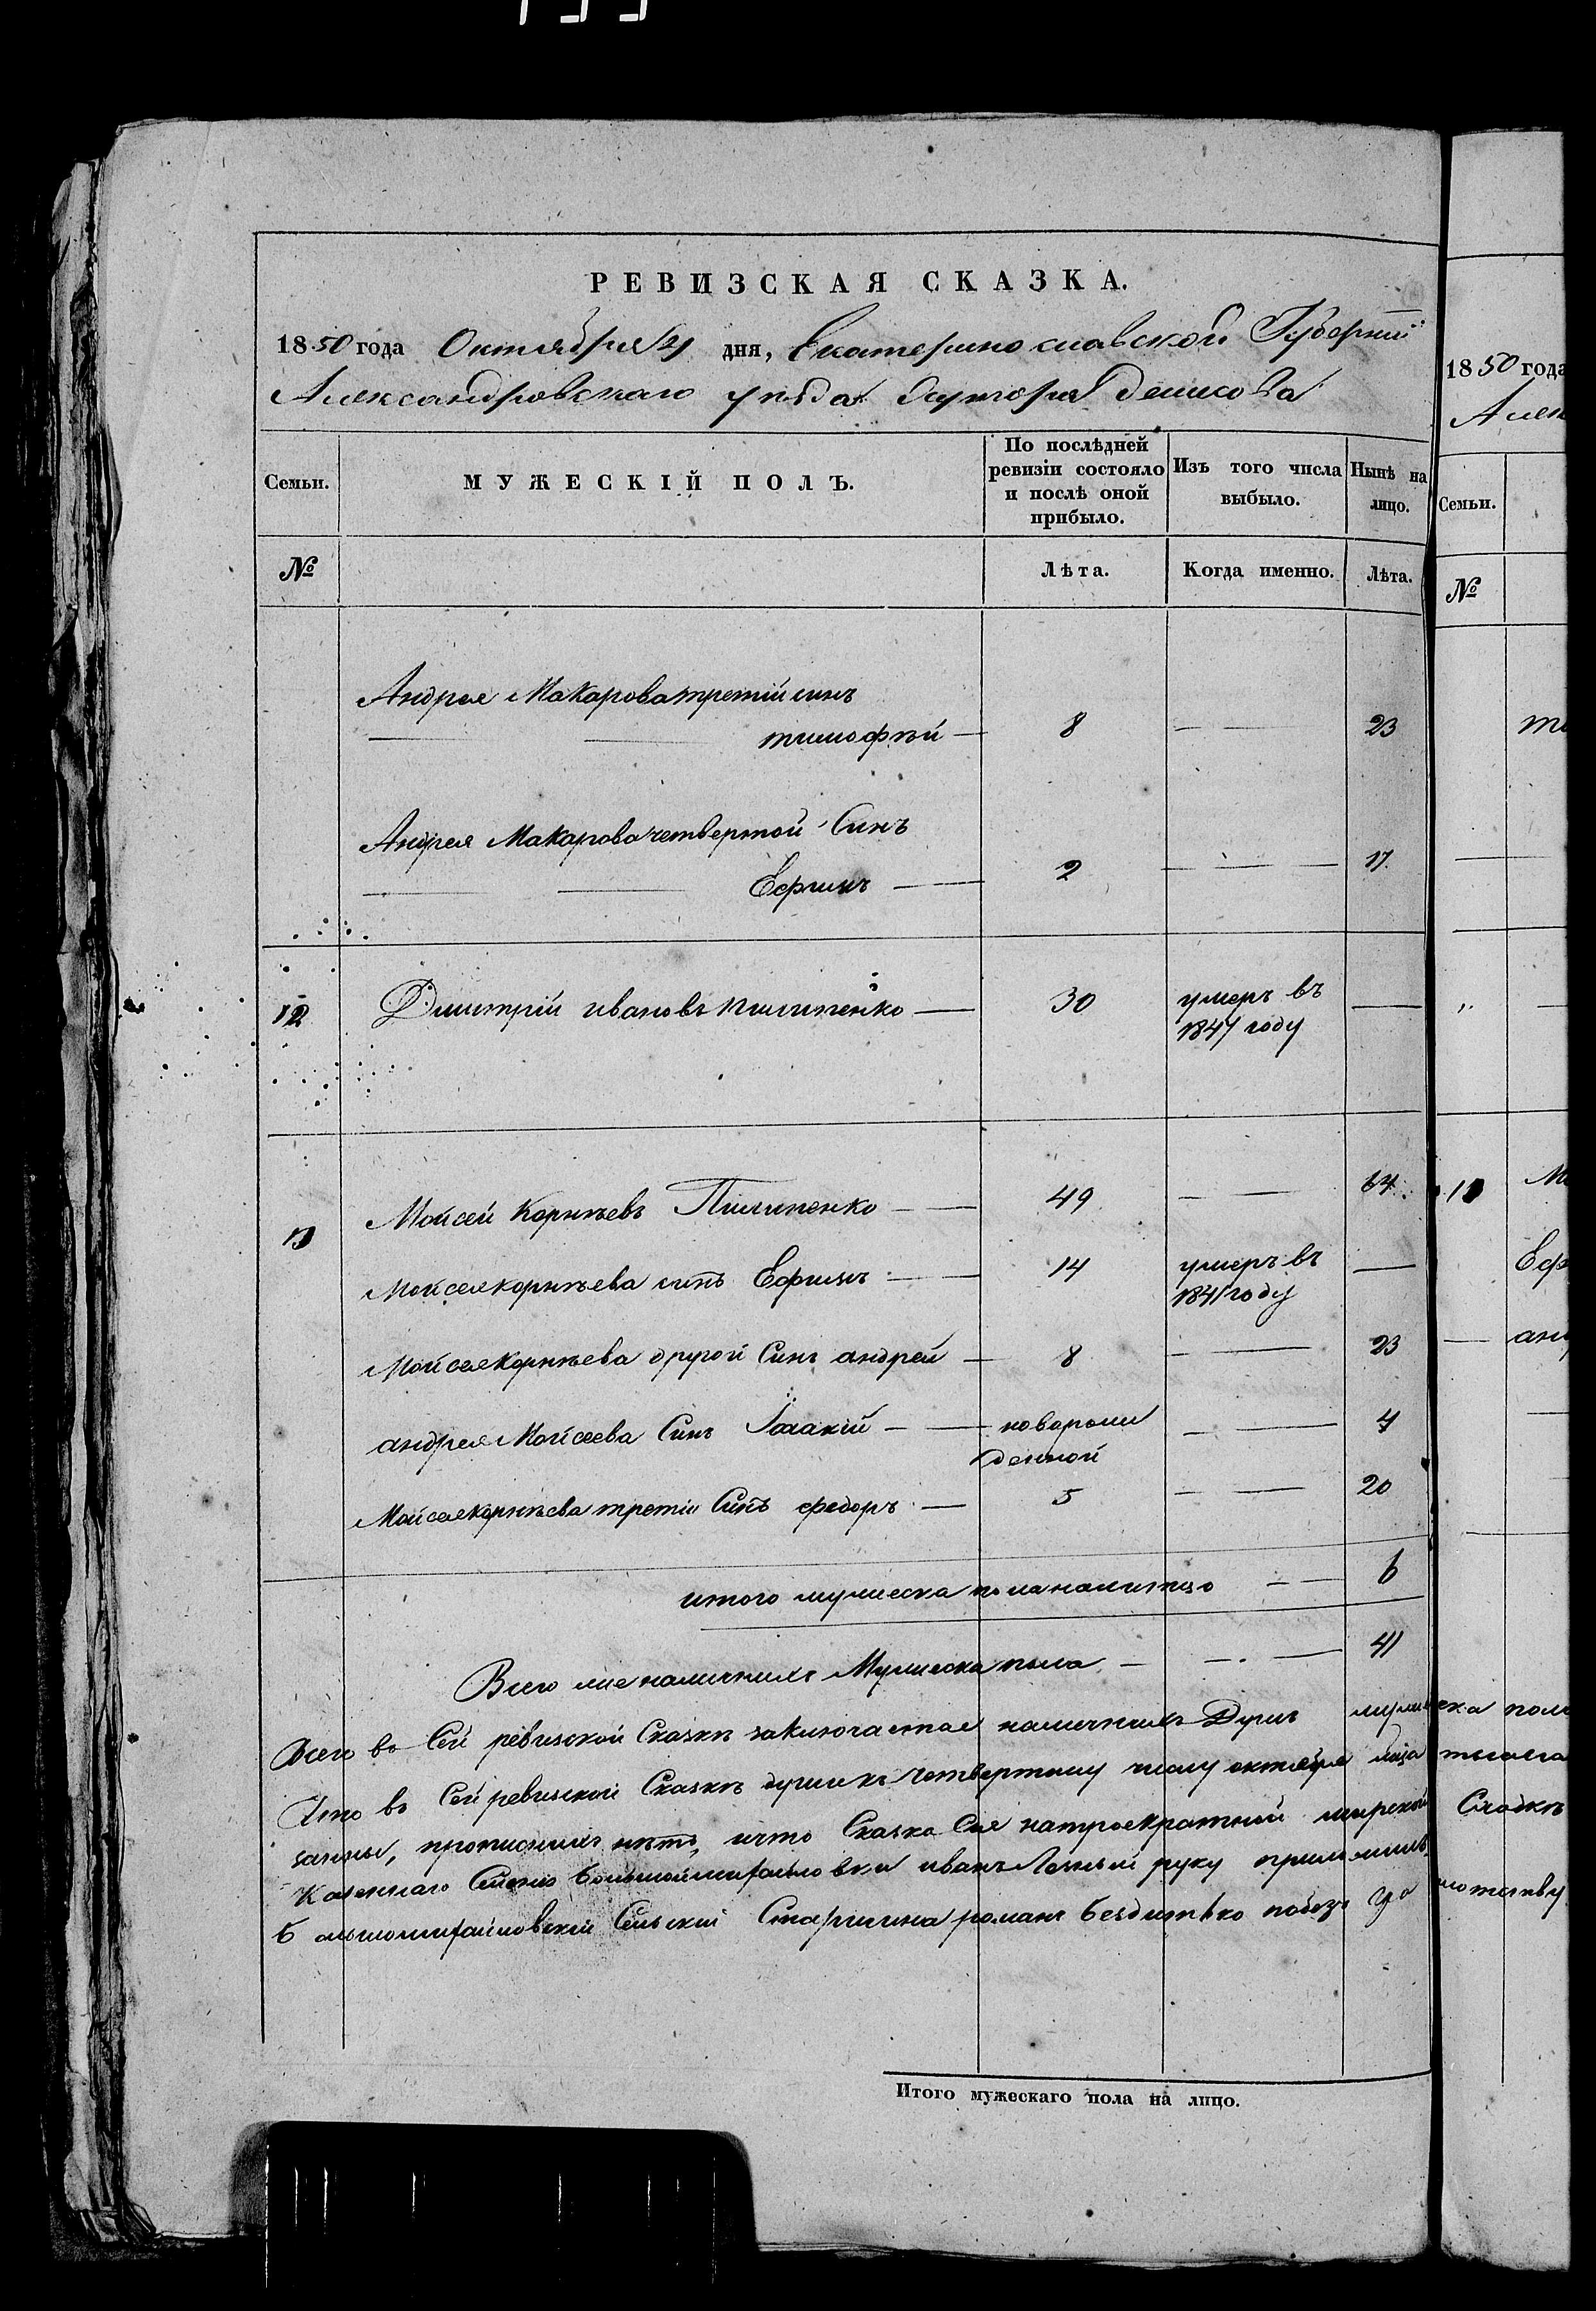 РЕВИЗСКАЯ СКАЗКА.
1850 года Октября 4 дня, Екатеринославской Губерніи
Александровскаго уѣзда хутора
Семьи. МУЖЕСКІЙ ПОЛЪ. По послѣдней ревизіи состояло и послѣ оной прибыло. Изъ того числа выбыло. Нынѣ на лицо.
№ Лѣта. Когда именно. Лѣта.
Андрея Макарова третій синъ
тимофѣй 8 23
Андрея Макарова четвертой Синъ
Ефимъ 2 17
12 Дмитрій ивановъ пилипенко 30 умеръ въ
1847 году
13 Мойсей Корнѣевъ Пилипенко 49 64
Мойсея корнѣева синъ Ефимъ 14 умеръ въ
1841 году
Мойсея Корнѣева другой Синъ андрей 8 23
андрея Мойсеева Синъ Іоакій новорож
денной 4
Мойсея корнѣева третій Синъ федоръ 5 20
итого мужеска пола налицо 6
Всего же наличнихъ Мужеска пола 41
Всего въ Сей ревизской Сказкѣ заключается наличнихъ Душъ мужеска пола
Что въ Сей ревизской Сказкѣ душъ къ четвертому числу октября
прописнихъ нѣтъ, что Сказка Сія на троекратной мирской Сходкѣ
Казеннаго Селенія Большоймихайловки иванъ руку приложилъ
Большомихайловскій Сельскій Старшина романъ бездитько
Итого мужескаго пола на лицо.
1850 года
Семьи.
№